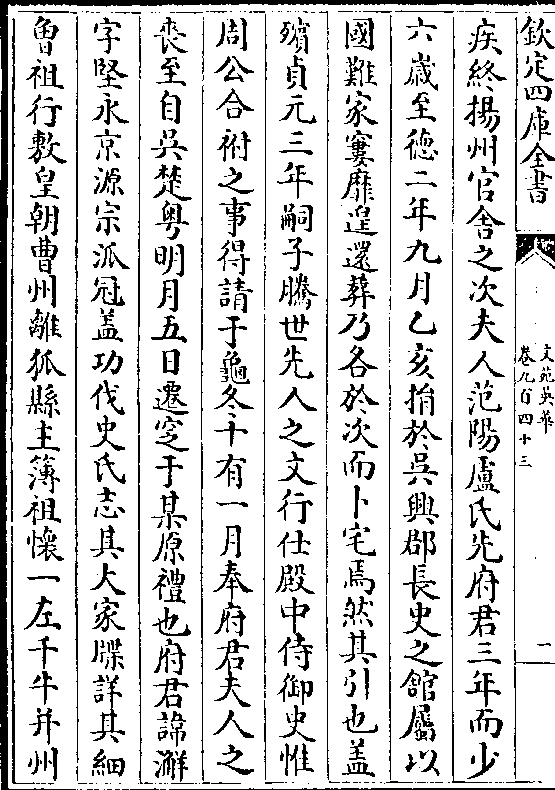 欽定四庫全書
文苑英華
卷九百四十三
二
疾終揚州官舍之次夫人范陽盧氏先府君三年而少
六歳至德二年九月乙亥捐於吳興郡長史之館屬以
國難家窶靡遑還葬乃各於次而卜宅焉然其引也盖
殯貞元三年嗣子騰世先人之文行仕殿中侍御史惟
周公合祔之事得請于龜冬十有一月奉府君夫人之
喪至自吳楚粤明月五日遷窆于某原禮也府君諱澥
字堅永京源宗泒冠盖功伐史氏志其大家牒詳其細
魯祖行敷皇朝曹州離狐縣主簿祖懐一左千牛并州